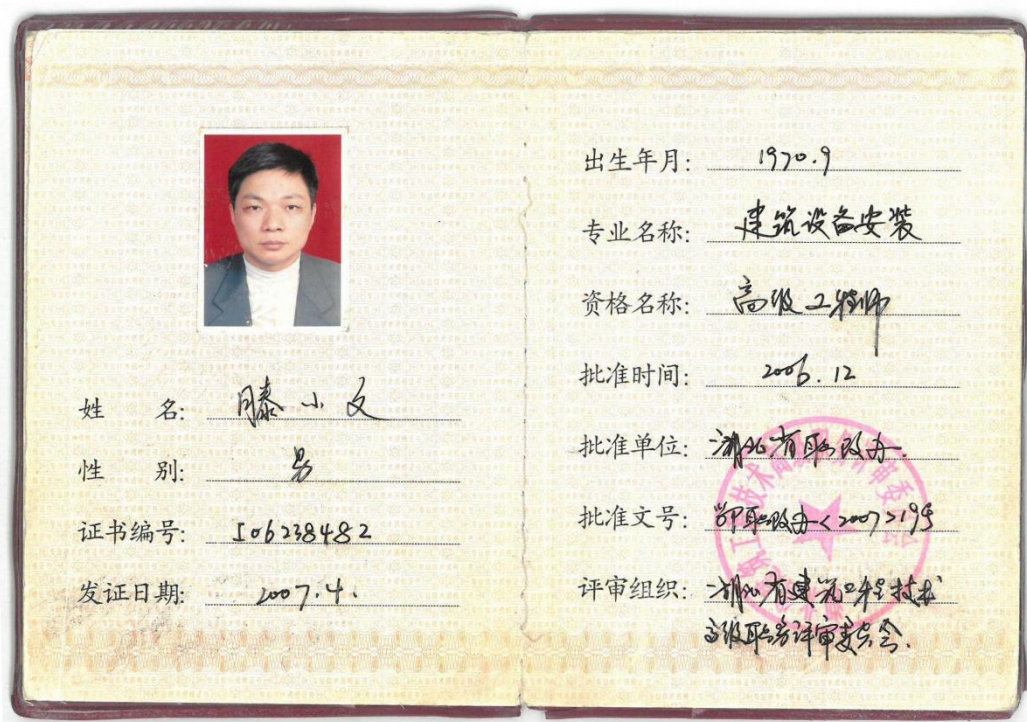 姓 名: 滕小文
性 别: 男
证书编号: I06238482
发证日期: 2007.4.
出生年月: 1970.9
专业名称: 建筑设备安装
资格名称: 高级工程师
批准时间: 2006.12
批准单位: 湖北省职改办.
批准文号: 鄂职改办<2007>195
评审组织: 湖北省建筑工程技术
高级职务评审委员会.